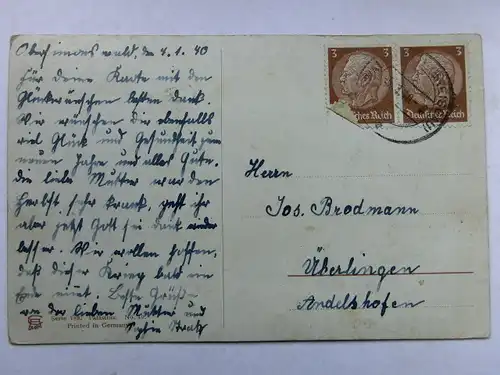 Obersimonswald, den 4.1.40
Für deine Karte mit den
Glückwünschen besten Dank.
Wir wünschen Dir ebenfalls
viel Glück und Gesundheit zum
neuen Jahre und alles Gute.
Die liebe Mutter war den
Herbst sehr krank, geht ihr
aber jetzt Gott sei dank wieder
besser. Wir wollen hoffen,
daß dieser Krieg bald ein
Ende nimt. Beste Grüße
von der lieben Mutter und
Sophie
Printed in Germany
3 3
Deutsches Reich
Herrn
Jos. Brodmann
Überlingen
Andelshofen